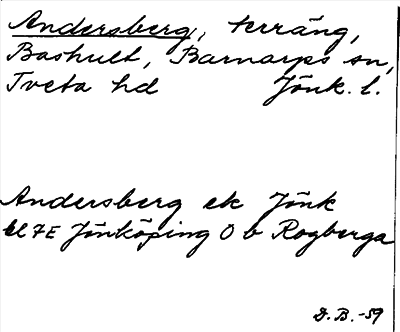 Andersberg, terräng,
Bashult, Barnarps sn,
Tveta hd Jönk. l.
Andersberg ek Jönk
bl 7E Jönköping O b Rogberga
D.B.-59